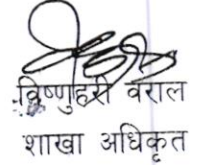 विष्णुहरी वराल
शाखा अधिकृत